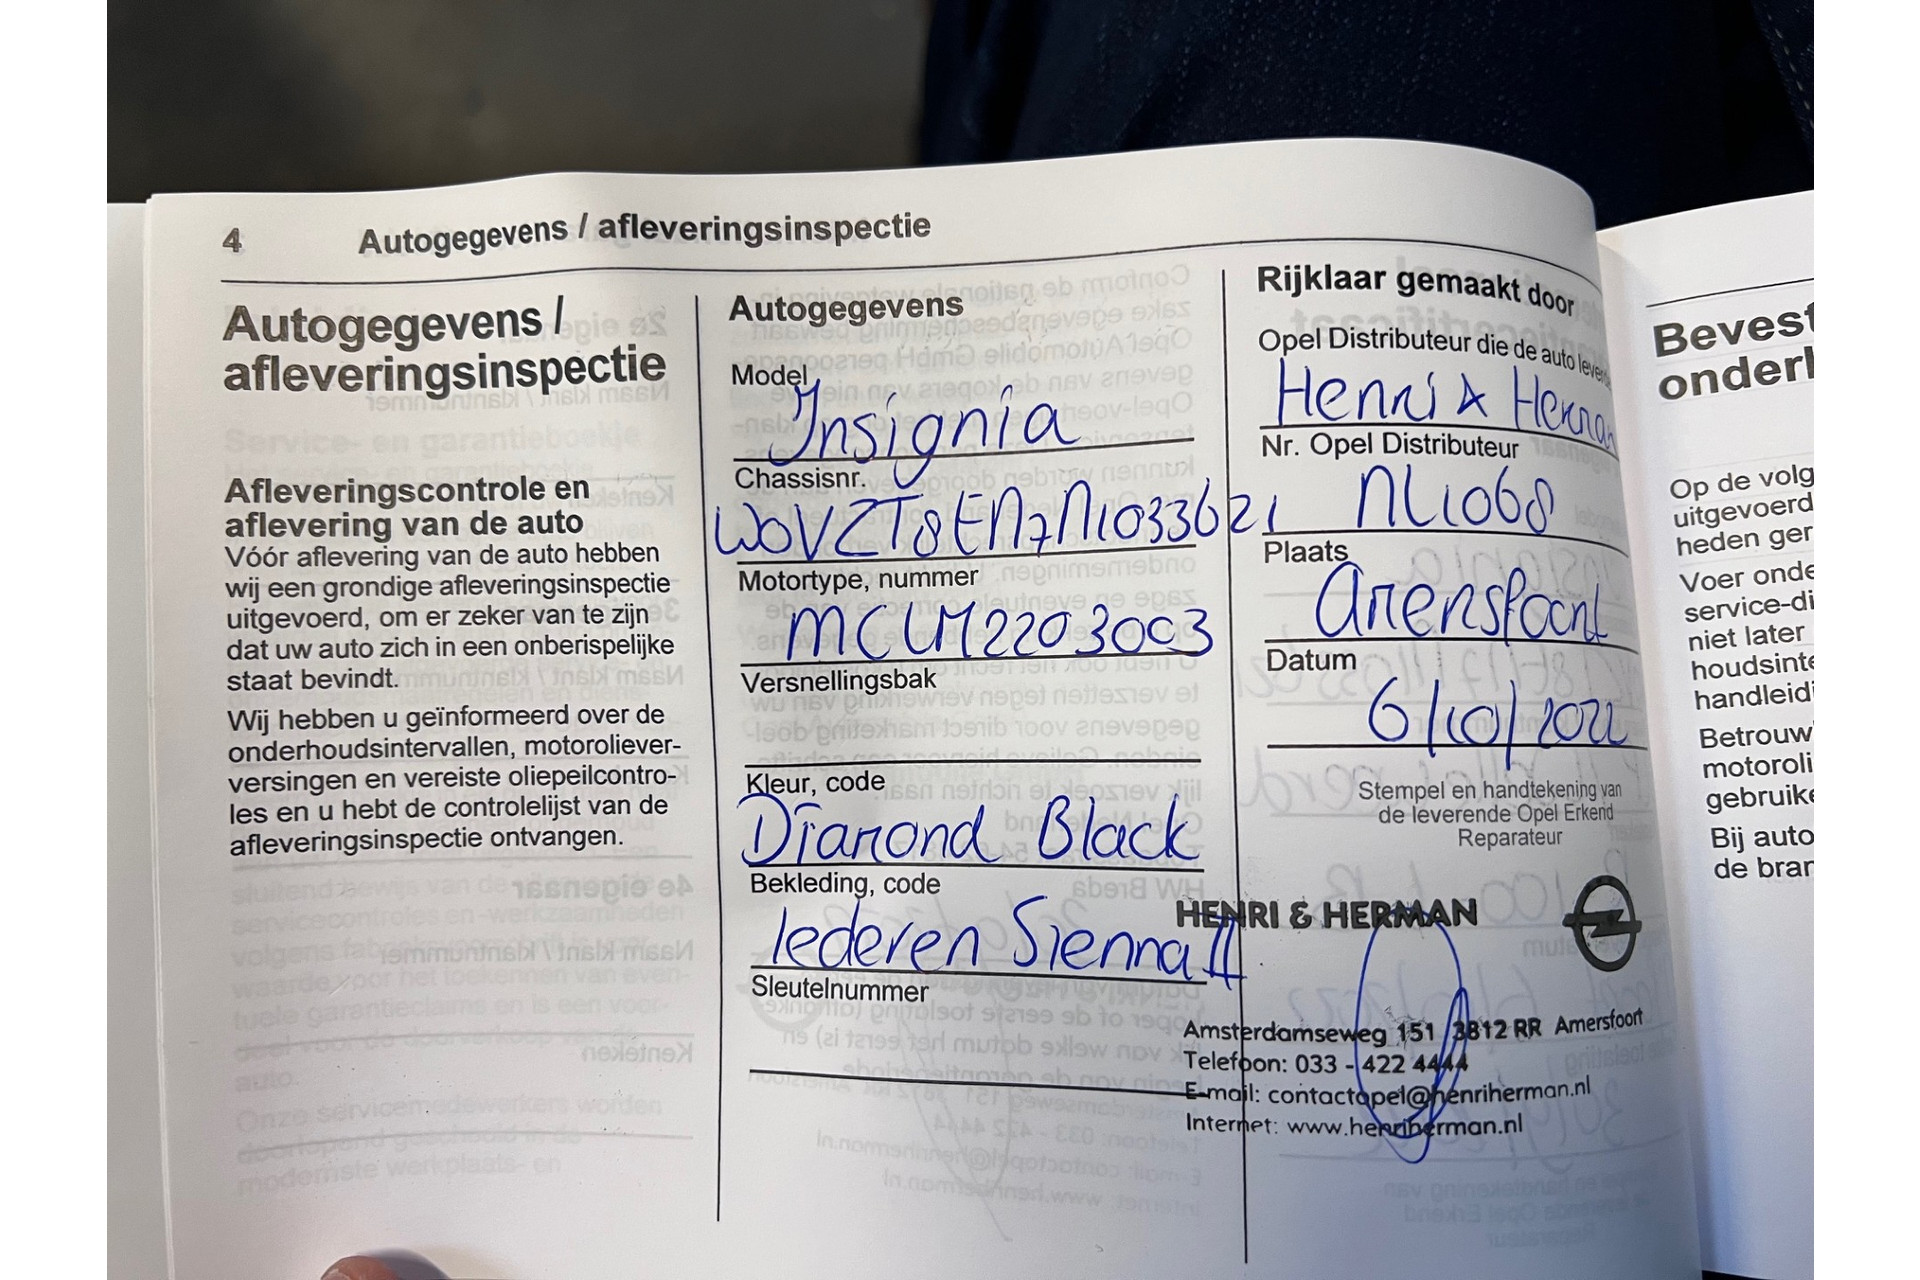 4 Autogegevens / afleveringsinspectie
Autogegevens /
afleveringsinspectie
Afleveringscontrole en
aflevering van de auto
Vóór aflevering van de auto hebben
wij een grondige afleveringsinspectie
uitgevoerd, om er zeker van te zijn
dat uw auto zich in een onberispelijke
staat bevindt.
Wij hebben u geïnformeerd over de
onderhoudsintervallen, motoroliever-
versingen en vereiste oliepeilcontro-
les en u hebt de controlelijst van de
afleveringsinspectie ontvangen.
Autogegevens
Model
Insignia
Chassisnr.
W0VZT8EN7N1033621
Motortype, nummer
MCLM2203003
Versnellingsbak
Kleur, code
Diamond Black
Bekleding, code
lederen Sienna II
Sleutelnummer
Rijklaar gemaakt door
Opel Distributeur die de auto
Henri & Herman
Nr. Opel Distributeur
NL1068
Plaats
Amersfoort
Datum
6/10/2022
Stempel en handtekening van
de leverende Opel Erkend
Reparateur
HENRI & HERMAN
Amsterdamseweg 151 3812 RR Amersfoort
Telefoon: 033 - 422 4444
E-mail: contactopel@henriherman.nl
Internet: www.henriherman.nl
Bevest
onderh
Op de volg
uitgevoerd
heden ger
Voer onde
service-di
niet later
houdsinte
handleidi
Betrouw
motoroli
gebruike
Bij auto
de bran